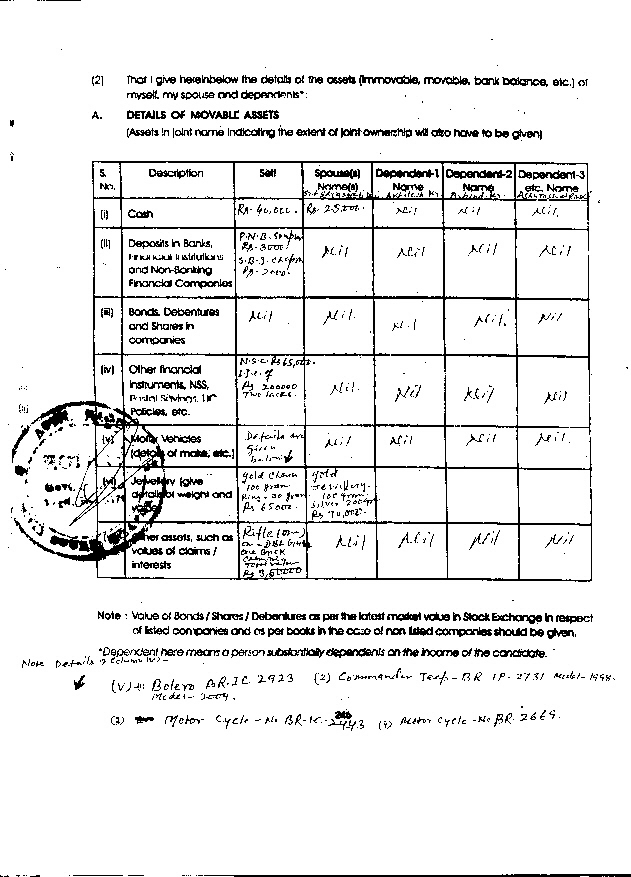 (2) That I give hereinbelow the details of the assets (immovable, movable, bank balance, etc.) of
myself, my spouse and dependents*:
A. DETAILS OF MOVABLE ASSETS
(Assets in joint name indicating the extent of joint ownership will also have to be given)
S. No. Description Self Spouse(s) Name(s) Dependent-1 Name Dependent-2 Name Dependent-3 etc. Name
(i) Cash Rs. 40,000. Rs. 25,000. Nil Nil Nil.
(ii) Deposits in Banks, Financial Institutions and Non-Banking Financial Companies P.N.B. Rs. 3000/ S.B.I. Rs. 2000. Nil Nil Nil Nil
(iii) Bonds, Debentures and Shares in companies Nil Nil. Nil Nil. Nil
(iv) Other financial instruments, NSS, Postal Savings, LIC Policies, etc. N.S.C. Rs 65,000. Rs 200000 Two lacks. Nil. Nil Nil Nil
(v) Motor Vehicles (details of make, etc.) Details are given below Nil Nil Nil Nil.
(vi) Jewellery (give details of weight and value) gold chain 100 gram Ring Rs 65000. gold Jewillery. 100 gram Silver Rs 70,000.
Other assets, such as values of claims / interests Rifle one Brick Nil Nil Nil Nil
Note : Value of Bonds / Shares / Debentures as per the latest market value in Stock Exchange in respect
of listed companies and as per books in the case of non listed companies should be given.
*Dependent here means a person substantially dependents on the income of the candidate.
Note Details of Column (v) -
(V) (1) Bolero BR.IC 2923 (2) Commander Jeep - BR 1P-2731 Model-1998.
Model-
(3) Motor Cycle - No BR-1C- (4) Motor Cycle - No BR-2669.